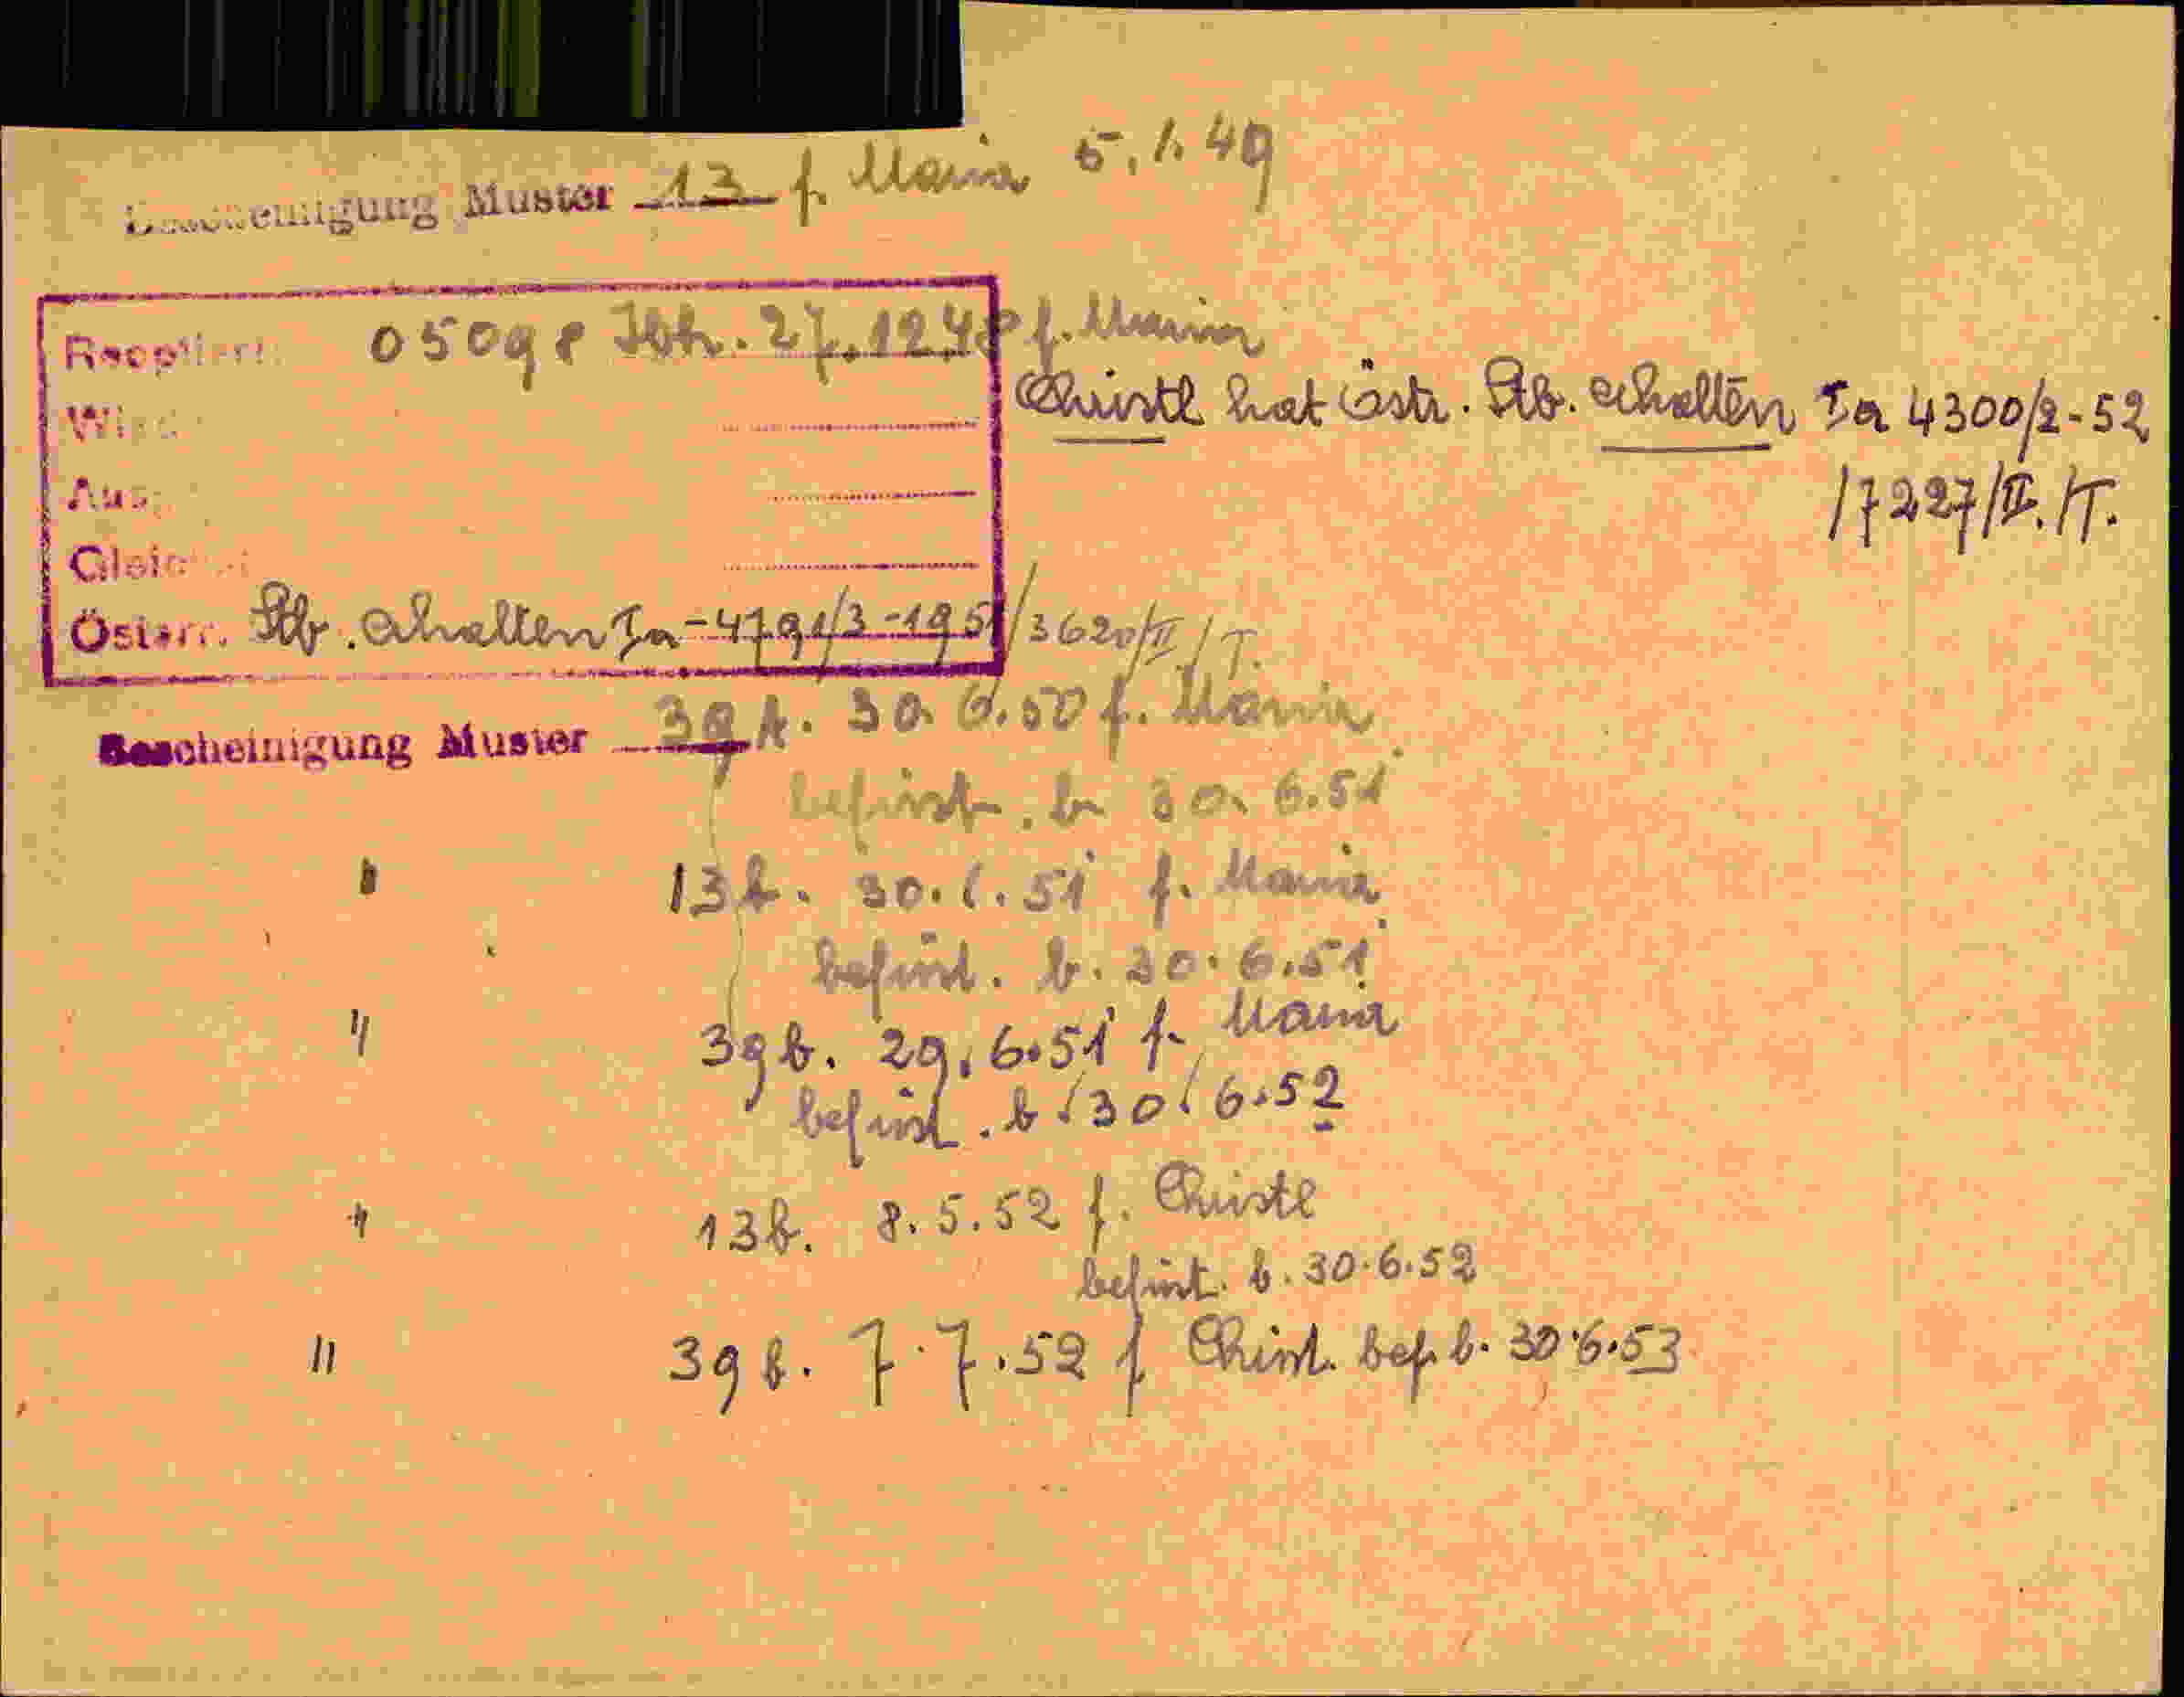 Bescheinigung Muster 13 f. Maria 5.1.49
05098 Ibk. 27.12.48 f. Maria
Christl hat östr. Stb. erhalten Ia 4300/2-52
/7227/II./T.
Österr. Stb. erhalten Ia-4791/3-1951/3620/II/T.
Bescheinigung Muster 39 b. 30.6.50 f. Maria
befrist. b. 30.6.51
" 13 b. 30.6.51 f. Maria
befrist. b. 30.6.51
" 39 b. 29.6.51 f. Maria
befrist. b. 30.6.52
" 13 b. 8.5.52 f. Christl
befrist. b. 30.6.52
" 39 b. 7.7.52 f Christ. bef. b. 30.6.53